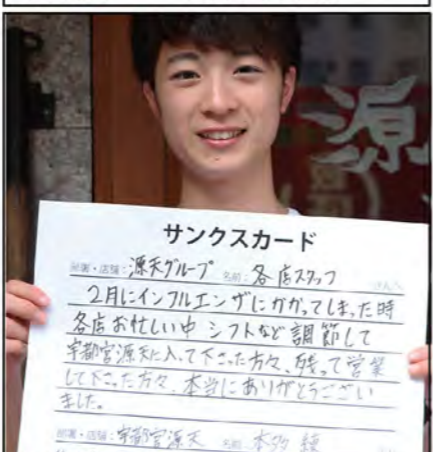 源
サンクスカード
部署・店舗：源天グループ 名前：各店スタッフ さんへ
2月にインフルエンザにかかってしまった時
各店お忙しい中 シフトなど調節して
宇都宮源天に入って下さった方々、残って営業
して下さった方々、本当にありがとうござい
ました。
部署・店舗：宇都宮源天 名前：本多